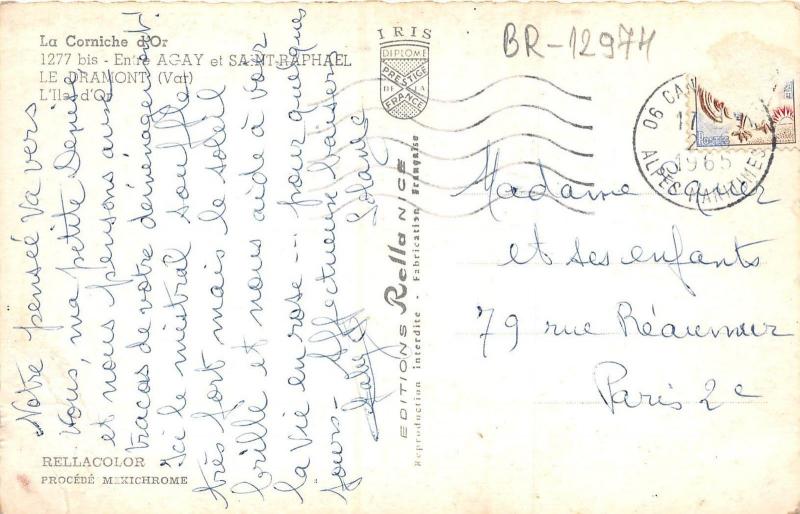 La Corniche d'Or
1277 bis - Entre AGAY et SAINT-RAPHAEL
LE DRAMONT (Var)
L'Ile d'Or
IRIS
DIPLOME
PRESTIGE
DE LA
FRANCE
BR-12974
06 CA
17
1965
ALPES MARITIMES
Notre pensée va vers
vous, ma petite Denise
et nous pensons aux
tracas de votre déménagement!
Ici le mistral souffle
très fort mais le soleil
brille et nous aide à voir
la vie en rose -- pour quelques
jours - Affectueux baisers
Solange
EDITIONS Rella NICE
Reproduction interdite - Fabrication Française
Madame
et ses enfants
79 rue Réaumur
Paris 2e
RELLACOLOR
PROCÉDÉ MEXICHROME